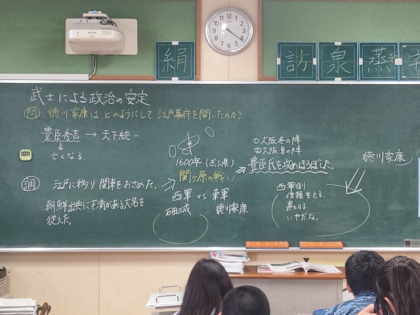 絹
訪
泉
蒸
武士による政治の安定
問 徳川家康はどのようにして江戸幕府を開いたのか?
豊臣秀吉 → 天下統一
亡くなる
調 江戸に移り 関東をおさめた。
朝鮮出兵に不満がある大名を
従えた。
1600年 (ぎふ県)
関ヶ原の戦い
西軍 vs 東軍
石田三成 徳川家康
①大阪冬の陣
②大阪夏の陣
豊臣氏を攻めほろぼした。
徳川家康
西軍側
いやだな。